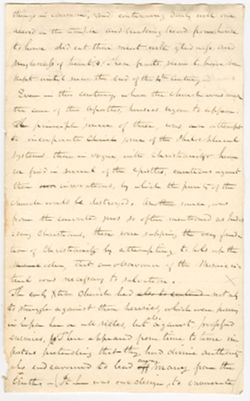 things in common, and continuing daily with one
accord in the temple and breaking bread from house
to house did eat their meat with gladness and
singleness of heart
kept until near the end of the 4th century
Even in this century, when the church was under
the care of the Apostles, heresies began to appear.
The principle source of these was an attempt
to incorporate some of the
systems then in vogue with christianity; hence
we find in several of the Epistles, cautions against
these innovations, by which the purity of the
church would be destroyed. Another source was
from the converts so often mentioned as Judai-
zing Christians, these were sapping the very founda-
tion of Christianity by attempting to
idea, that an observance of the Mosaic
was necessary to salvation.
The early Church had not only
to struggle against these heresies, which were
on all sides, but against professed
enemies, There appeared from time to time im-
postors pretending that they had divine authority
who endeavoured to lead many from the
truth. It was our design, to enumerate